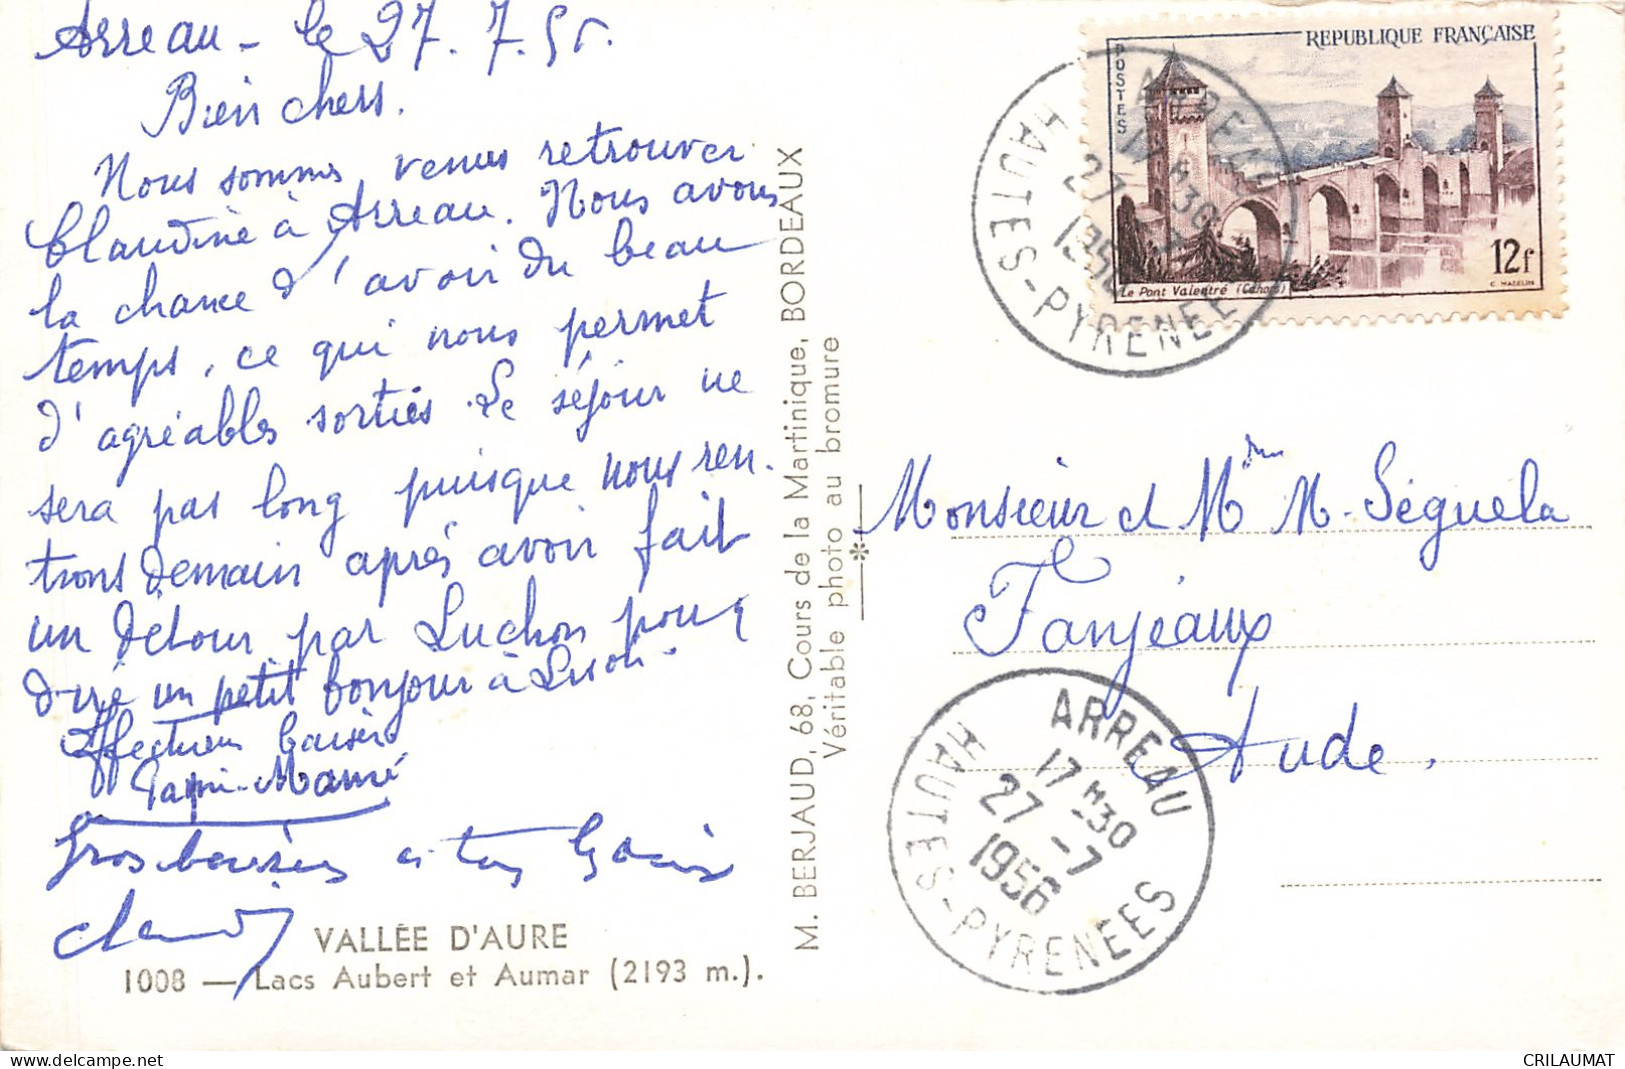 Arreau - le 27.7.56.
Bien chers.
Nous sommes venus retrouver
Claudine à Arreau. Nous avons
la chance d'avoir du beau
temps, ce qui nous permet
d'agréables sorties. Le séjour ne
sera pas long puisque nous ren-
trons demain après avoir fait
un détour par Luchon pour
dire un petit bonjour à
Affectueux baisers
Papi-Mamé
Gros baisers
VALLÉE D'AURE
1008 — Lacs Aubert et Aumar (2193 m.).
M. BERJAUD, 68, Cours de la Martinique, BORDEAUX
Véritable photo au bromure
REPUBLIQUE FRANÇAISE
POSTES
12f
Le Pont Valentré (Cahors)
C. MAZELIN
ARREAU
17 H 30
27 -7
1956
HAUTES-PYRENEES
Monsieur et Mme M. Séguéla
Fanjeaux
Aude.
ARREAU
17 H 30
27 -7
1956
HAUTES-PYRENEES
CRILAUMAT